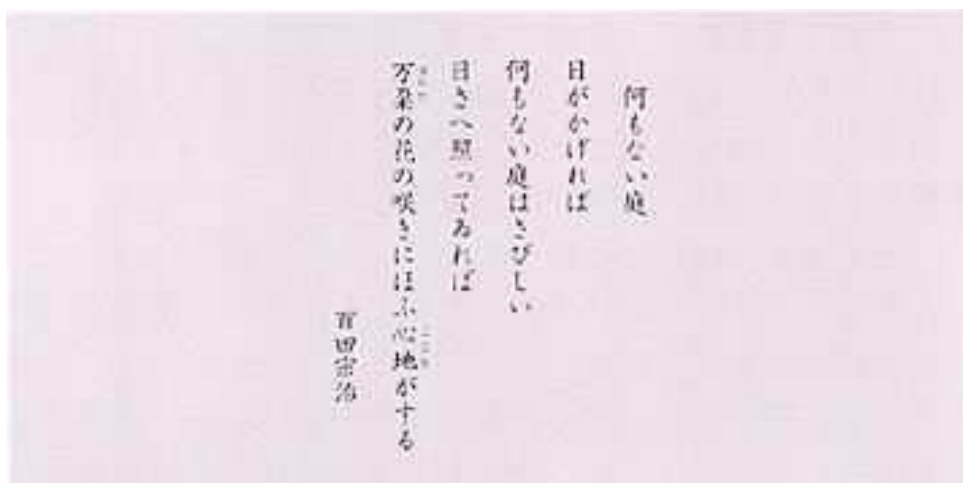 何もない庭
日がかげれば
何もない庭はさびしい
日さへ照つてゐれば
万朶の花の咲きにほふ心地がする
百田宗治